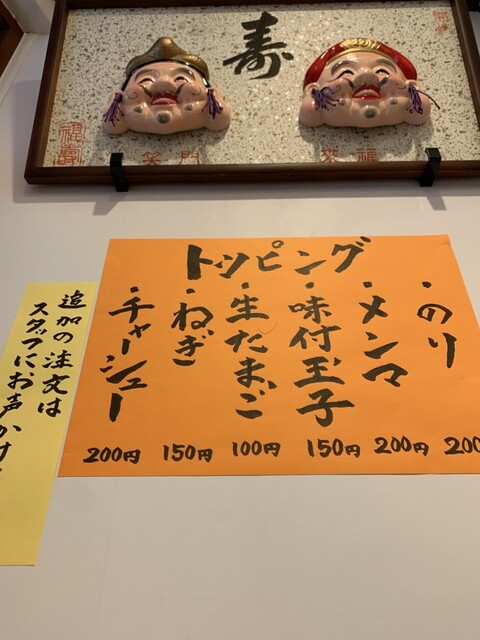 寿
笑門
来福
福寿
トッピング
・のり
・メンマ
・味付玉子
・生たまご
・ねぎ
・チャーシュー
200
200円
150円
100円
150円
200円
追加の注文は
スタッフにお声かけ